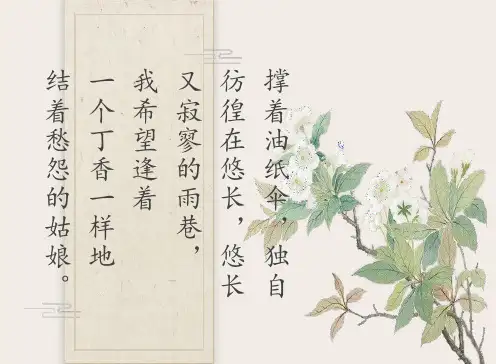 撑着油纸伞，独自
彷徨在悠长，悠长
又寂寥的雨巷，
我希望逢着
一个丁香一样地
结着愁怨的姑娘。